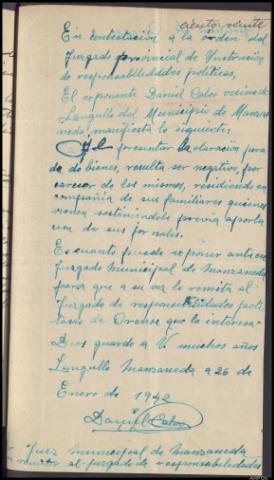 ciento veinte
En contestación a la orden del
Juzgado provincial de Instrucción
de responsabilidades políticas,
El exponente Daniel Calos vecino de
Langullo del Municipio de Manza
neda, manifiesta lo siguiente:
presentar declaración jura
da de bienes, resulta ser negativa, por
carecer de los mismos, residiendo en
compañía de sus familiares quienes
vienen sosteniéndole previa aporta
cion de sus jornales.
Es cuanto puedo exponer ante ese
Juzgado Municipal de Manzaneda
para que a su vez lo remita al
Juzgado de responsabilidades polí
ticas de Orense que lo interesa-
Dios guarde a V. muchos años
Langullo Manzaneda a 26 de
Enero de 1942
Daniel Calos
Juez Municipal de Manzaneda
remitir al juzgado de responsabilidades